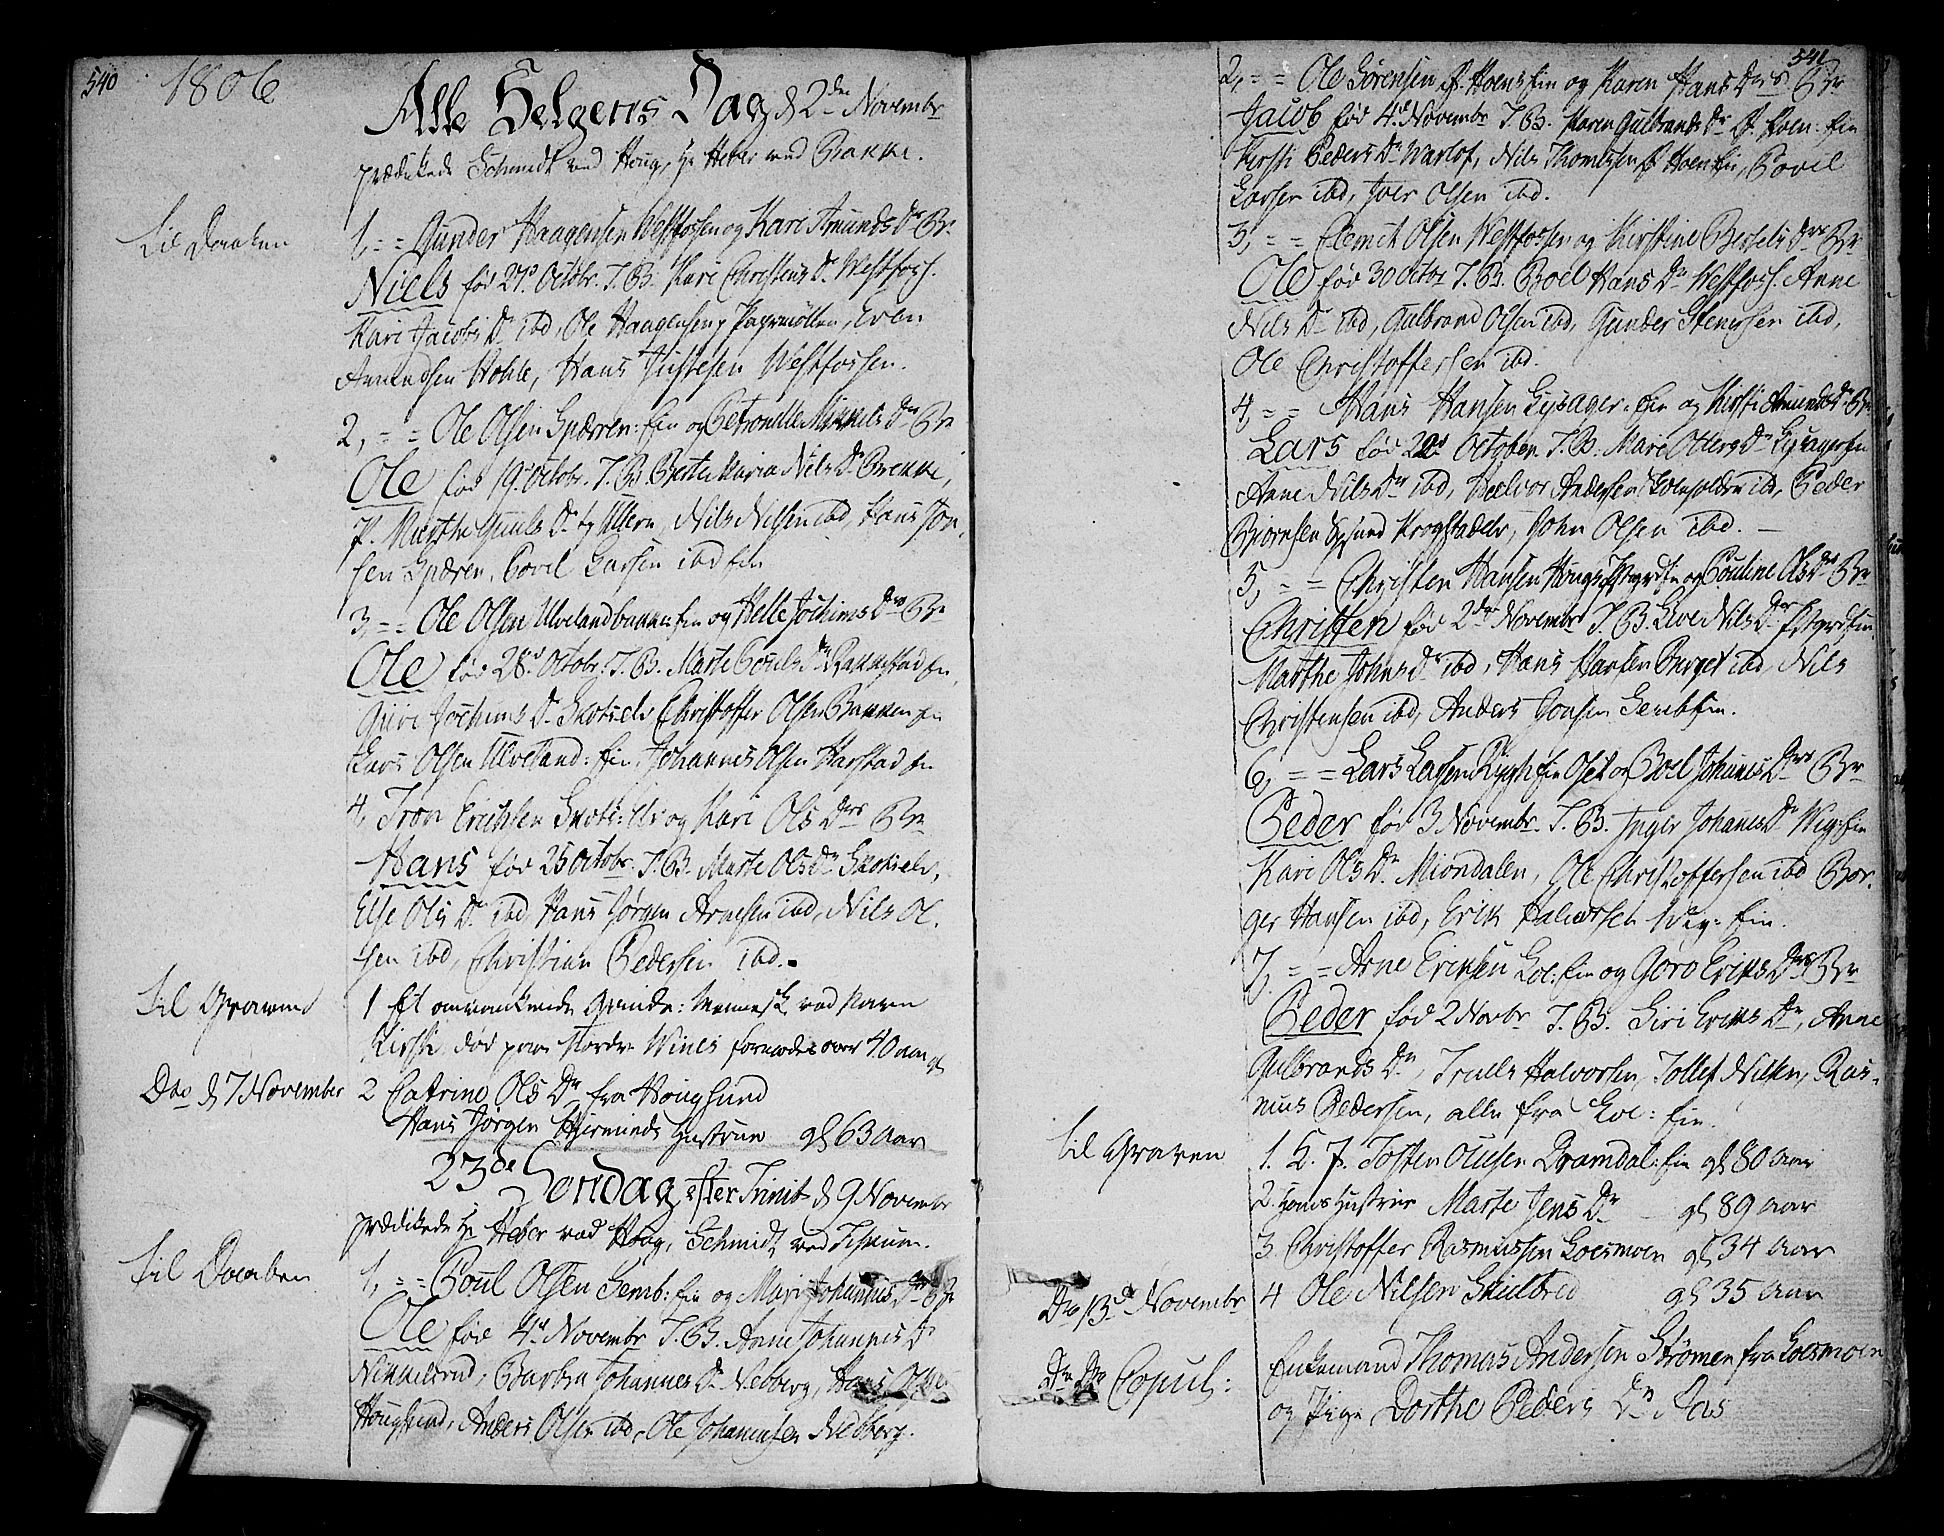 540
1806
Alle Helgens Dag d 2den Novembr
prædikede Schmidt ved Houg, Hr Heber ved Bakke.
til Daaben
1, = = Gunder Haagensen Westfossen og Kari Amunds Dr Br
Niels fød 27. Octobr. T. B. Kari Christens Dr Westfoss.
Kari Jacobs Dr ibd, Ole Haagensen Papirmøllen, Even
Amundsen Hohle, Hans Justesen Westfossen.
2, = = Ole Olsen Spæren: Ein og Petronelle Mikkels Dr Br
Ole fød 19. Octobr. T. B. Berte Maria Nils Dr Brekke,
P. Marthe Guuls Dr Ullern, Nils Nilsen ibd, Hans Jon
sen Spæren, Povel Larsen ibd Ein
3, = = Ole Olsen Ulvelandbakken: Ein og Helle Jochims Drs Br
Ole fød 28d Octobr. T. B. Marte Pouels Dr Bakkestad Ein,
Guri Jochims Dr Skotselv Christoffer Olsen Bakken Ein
Lars Olsen Ulveland: Ein, Johannes Olsen Harstad Ein
4, Tron Erichsen Skots: Elv og Kari Ols Drs Br
Hans fød 25 Octobr. T. B. Marte Ols Dr Skotselv,
Else Ols Dr ibd, Hans Jørgen Arnesen ibd, Nils Ol-
sen ibd, Christian Pedersen ibd.
til Graven
1 Et omvankende Menneske ved Navn
Kirsti, død paa Nordre Wines formodes over 40 aar gl
Dto d 7 November
2 Catrine Ols Dr fra Hougsund
Hans Jørgen Hustrue gl 63 Aar
23de Søndag efter Trinit d 9 Novembr
prædikede Hr Heber ved Houg, Schmidt ved Fiskum.
til Daaben
1, = = Poul Olsen Semb: Ein og Mari Johannes Dr Br
Ole fød 4d Novembr T. B. Anne Johannes Dr
Mikkelsrud, Barbra Johannes Dr Nedberg, Hans Olsen
Hougsund, Anders Olsen ibd, Ole Johannesen Nedberg.
541
2, = = Ole Sørensen Hoens Ein og Karen Hans Drs Br
Jacob fød 4d Novembr T. B. Karen Gulbrands Dr Hoen: Ein
Kirsti Peders Dr Warlof, Nils Thomesen Hoen Ein, Povil
Larsen ibd, Iver Olsen ibd.
3, = = Clemet Olsen Westfossen og Kirstine Bessels Drs Br
Ole fød 30 Octbr T. B. Boel Hans Dr Westfoss. Anne
Nils Dr ibd, Gulbrand Olsen ibd, Gunder Stenersen ibd,
Ole Christoffersen ibd.
4, = = Hans Hansen Lysager: Ein og Kirsti Amunds Dr Br
Lars fød 22d October T. B. Mari Otters Dr Lysager Ein
Anne Nils Dr ibd, Halvor Andersen Skoleholder ibd, Peder
Biørnsen Krogstadelv, John Olsen ibd.
5, = = Christen Hansen Hougs Prgrd Ein og Pouline Ols Dr Br
Christen fød 2den Novembr T. B. Live Nils Dr Prgrd Ein,
Marthe Johns Dr ibd, Hans Hansen Berget ibd, Nils
Christensen ibd, Anders Jonsen Semb Ein.
6, = = Lars Larsen Rygh Ein Oset og Boel Johanes Drs Br
Peder fød 3 Novembr. T. B. Inger Johanes Dr Wig: Ein
Kari Ols Dr Miøndalen, Ole Christoffersen ibd Bør
ger Hansen ibd, Erik Halvorsen Wig: Ein.
7, = = Arne Eriksen Loe: Ein og Goro Eriks Drs Br
Peder fød 2 Novbr T. B. Siri Eriks Dr, Anne
Gulbrands Dr, Truls Halvorsen, Tollef Nilsen, Ras-
mus Pedersen, alle fra Loe: Ein.
til Graven
1. L. F. Tosten Olusen Dramdal: Ein gl 80 Aar
2. Hans Hustrue Marte Jens Dr gl 89 Aar
3. Christoffer Rasmussen Loesmoen gl 34 Aar
Dto 13d Novembr
4 Ole Nilsen Skiilbred gl 35 Aar
Dto Dto Copul:
Enkemand Thomas Andersen Strømen fra Loesmoen
og Pige Dorthe Peders Dr Aas